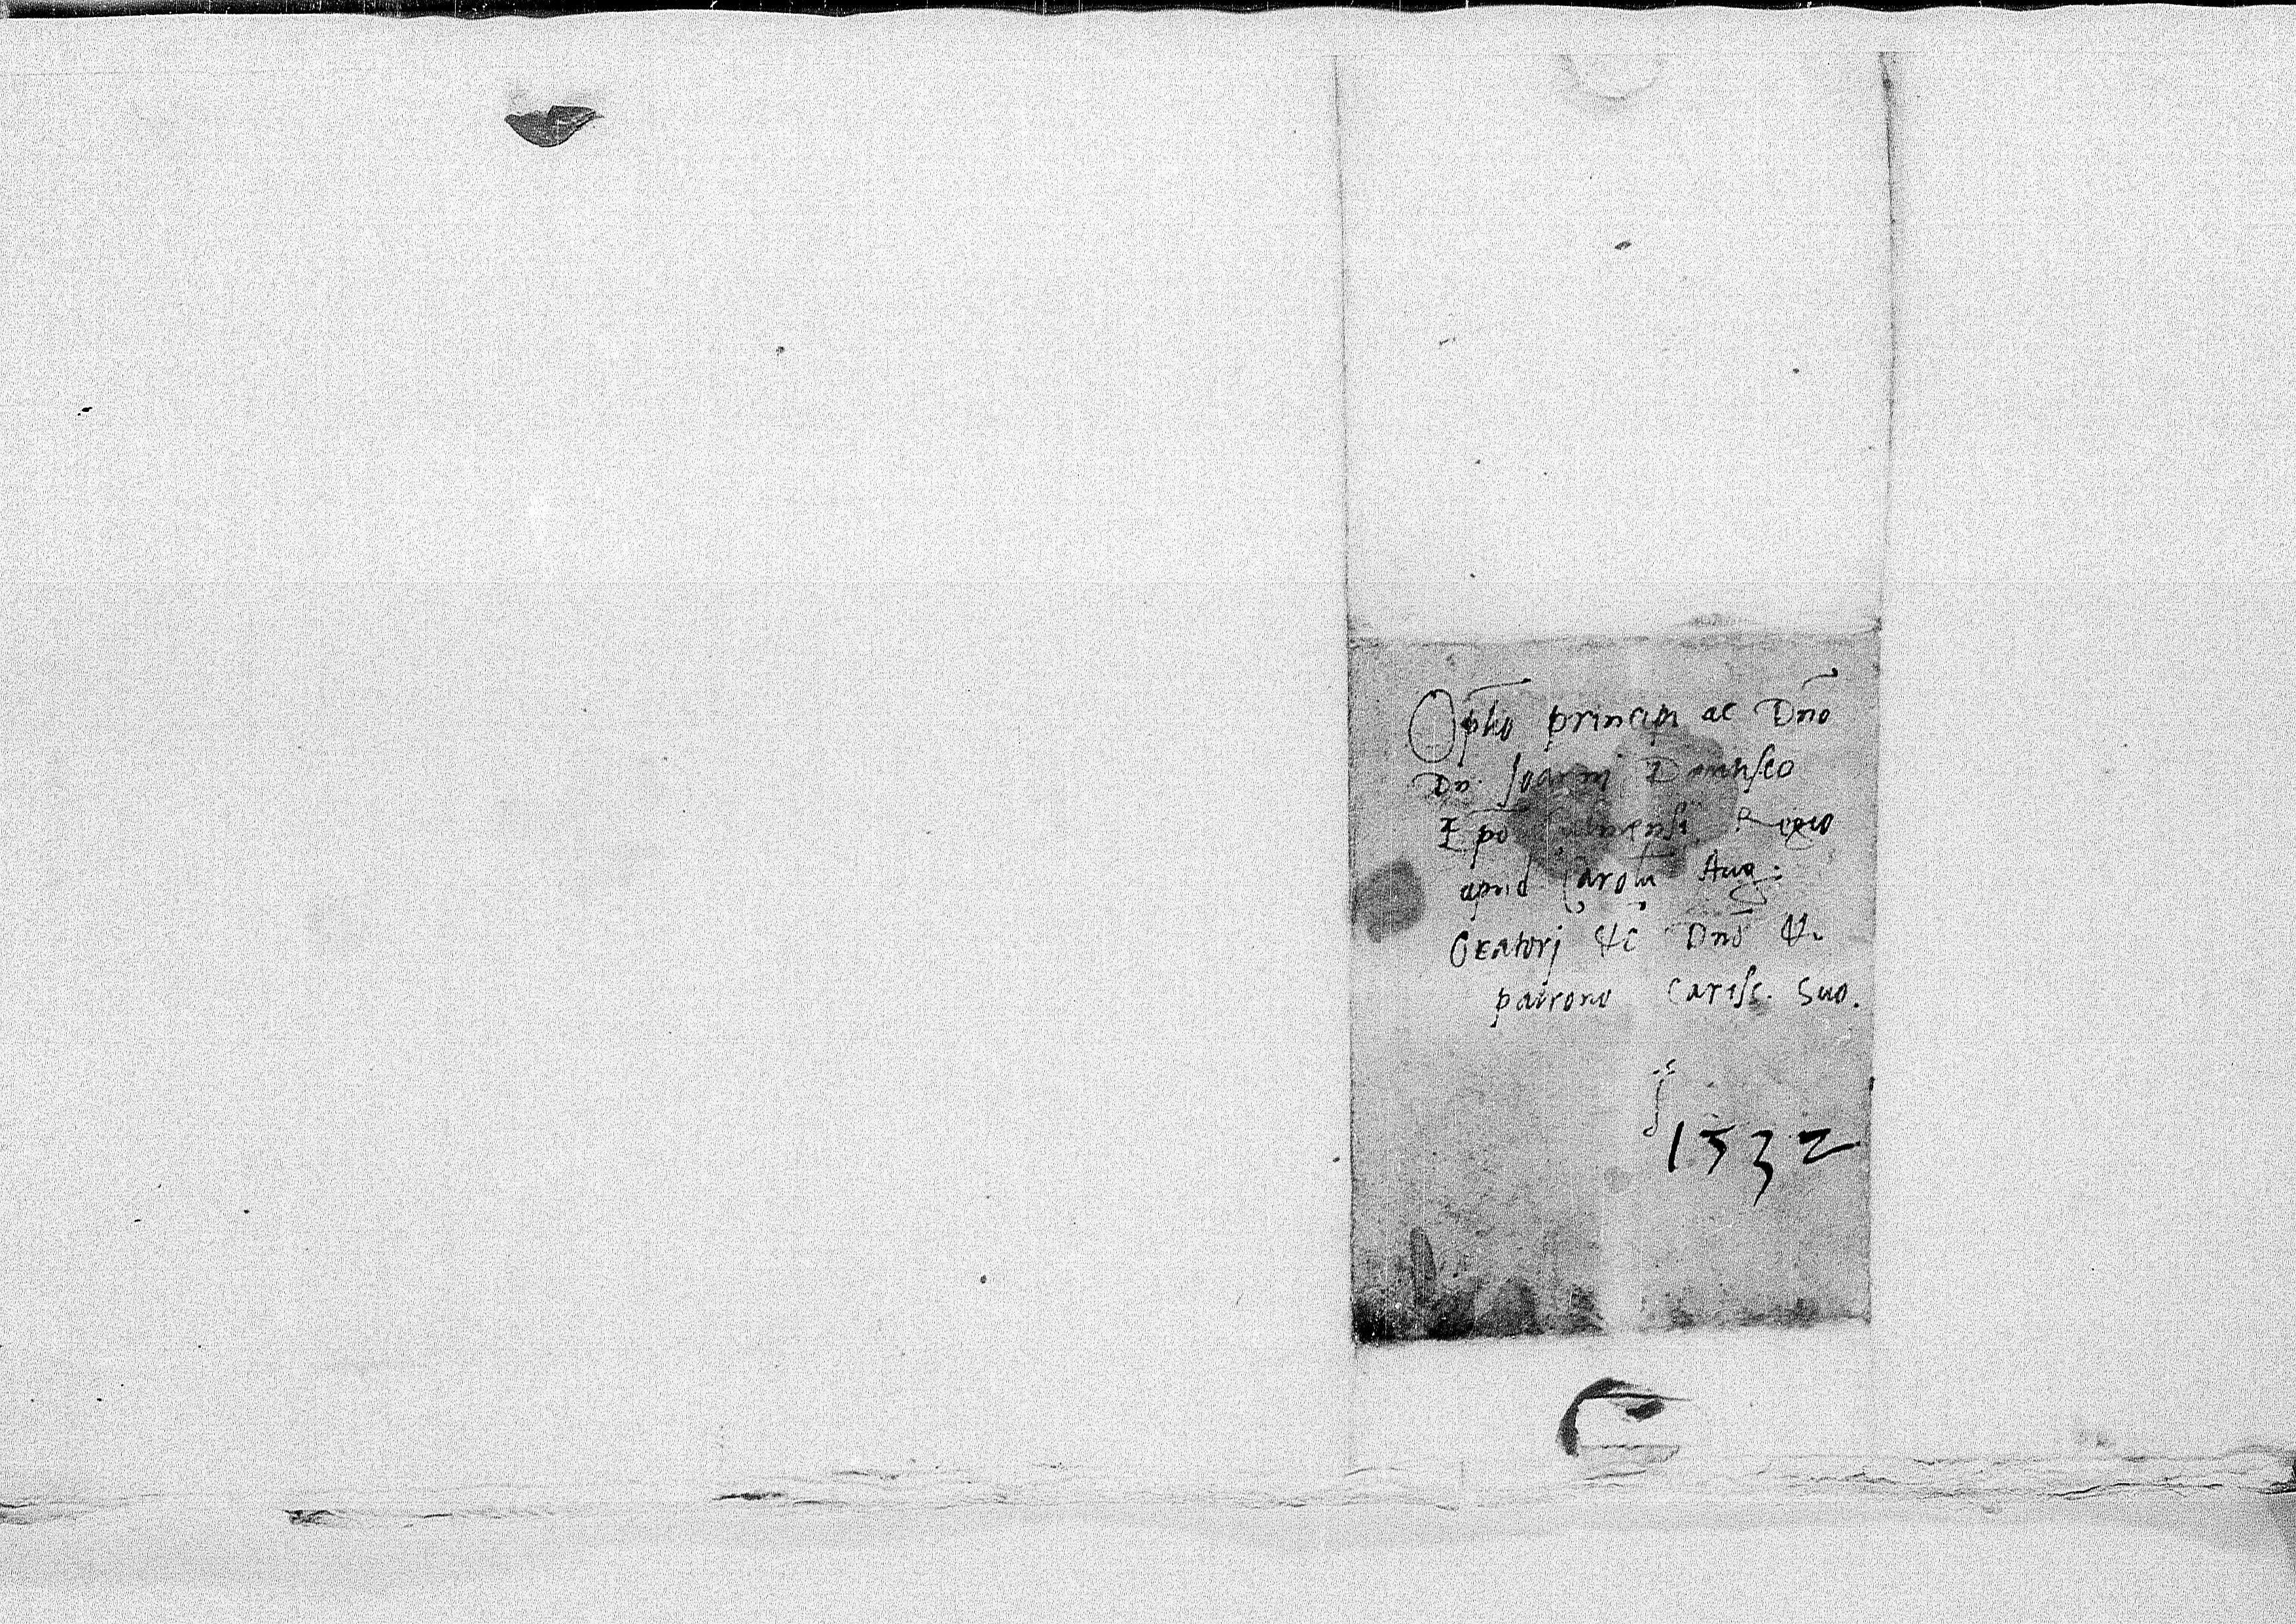 Optīo principi ac Dno̅
Dn. Joanni Dantisco
Epo̅ Culmensi Regio
apud Carolu̅ Aug:
Oratori etc̅ Dno̅ et
patrono Cariss. Suo.
1532